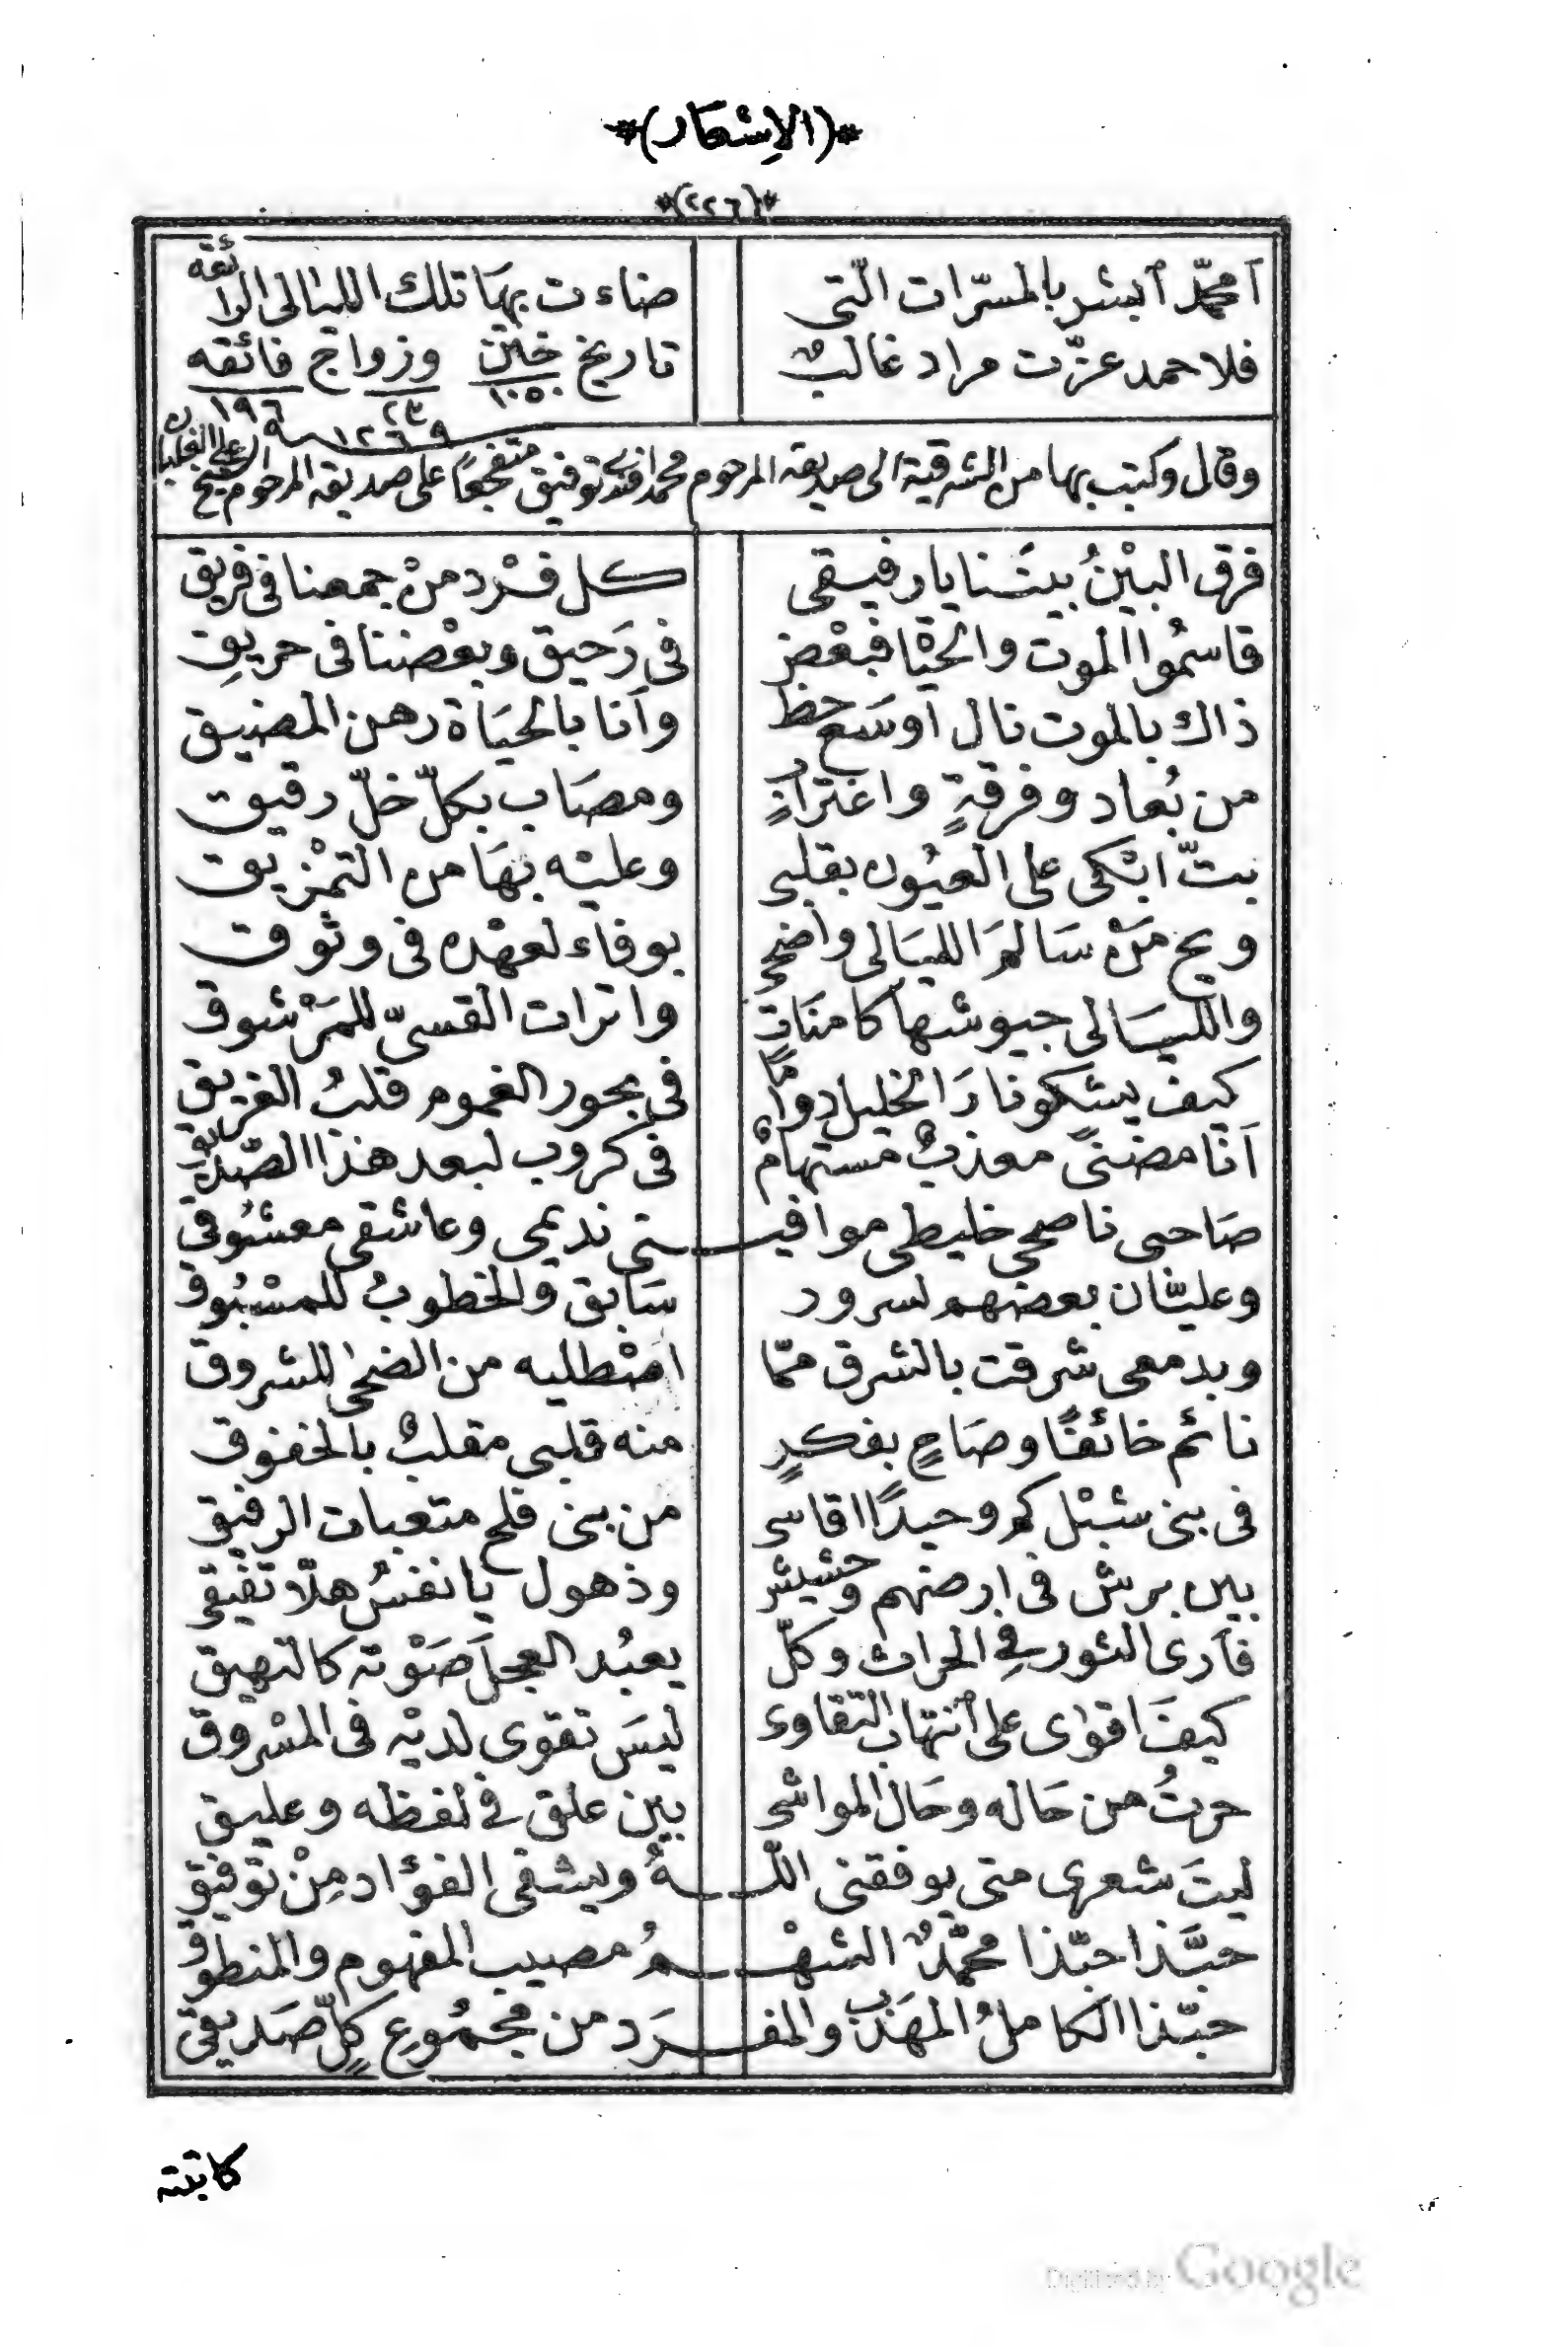 *(الاِشعار)*
*(٢٢٦)*
اَمحمّد اَبشر بالمسرّات الّتى ضاءت بهَا تلك الليالى الرائقه
فلاحمد عزّت مراد غالبٌ تاريخ ختنٍ وزواج فائقه
١٠٥٠ ٢٣ ١٩٦
١٢٦٩
وقال وكتب بها من الشرقية الى صديقه المرحوم محمد افندى توفيق متفجعاً على صديقه المرحوم الشيخ على
فرق البيْنُ بيتَنا يا رفيقى كل فرْد منْ جمعنا فى فريق
قاسمُوا الموت والحيٰاة فبعْض فى رَحيق وبعْضنا فى حريقِ
ذاك بالموت نال اوسَع حظ وأنا بالحيَاة رهن المضيق
من بُعاد وفرقةٍ واغترابٍ ومصَاب بكلّ خلّ رقيق
بتّ ابْكى على العيُون بقلبى وعليْه بهَا من التمْزيق
ويح مَنْ سَالمَ الليَالى واضحى بوفاء لعهْده فى وثوق
والليَالى جيوشها كامنَاتٍ واترات القسىّ للمَرْشوق
كيف يشكو نارَ الخليل دوامًا فى بحور الغموم قلبُ الغريق
اَنا مضنىً معذبٌ مستهامٌ فى كروب لبعد هذا الصّديق
صَاحبى ناصحى خليطى موافيـتى نديمى وعاشقى معشُوقى
وعليّان بعضهم لسرور سَابق والخطوبُ للمسْبُوق
وبدمعى شرقت بالشرق ممّا امْطليه من الضحىٰ للشروق
نائم خائفًا وصَاحٍ بفكرٍ منه قلبى مقلبٌ بالخفوق
فى بنى شبْل كم وحيدًا اقاسى من بنى فلح متعبات الرفيق
بين برش فى ارضهم وحشيش وذهول يا نفسُ هلّا تفْيقى
فأرى الثور فى الحراث وكلّ يعبُد العجلَ صَوْته كالنهيق
كيفَ اقوٰى على اَنتهاب التقاوى ليسَ تقوى لديْه فى المسْروق
حرتُ من حَاله وحَال المواشى بين علق فى لفظه وعليق
ليتَ شعرى متى يوفقنى اللّـهُ ويشفى الفؤاد مِنْ توفيق
حبَّذا حبّذا محمّدٌ الشهْـمُ مصيب المفهوم والمنطوق
حبّذا الكاملُ المهَذب والمفـرَد من مجمُوعِ كلّ صَديقى
كابنته
Digitized by Google